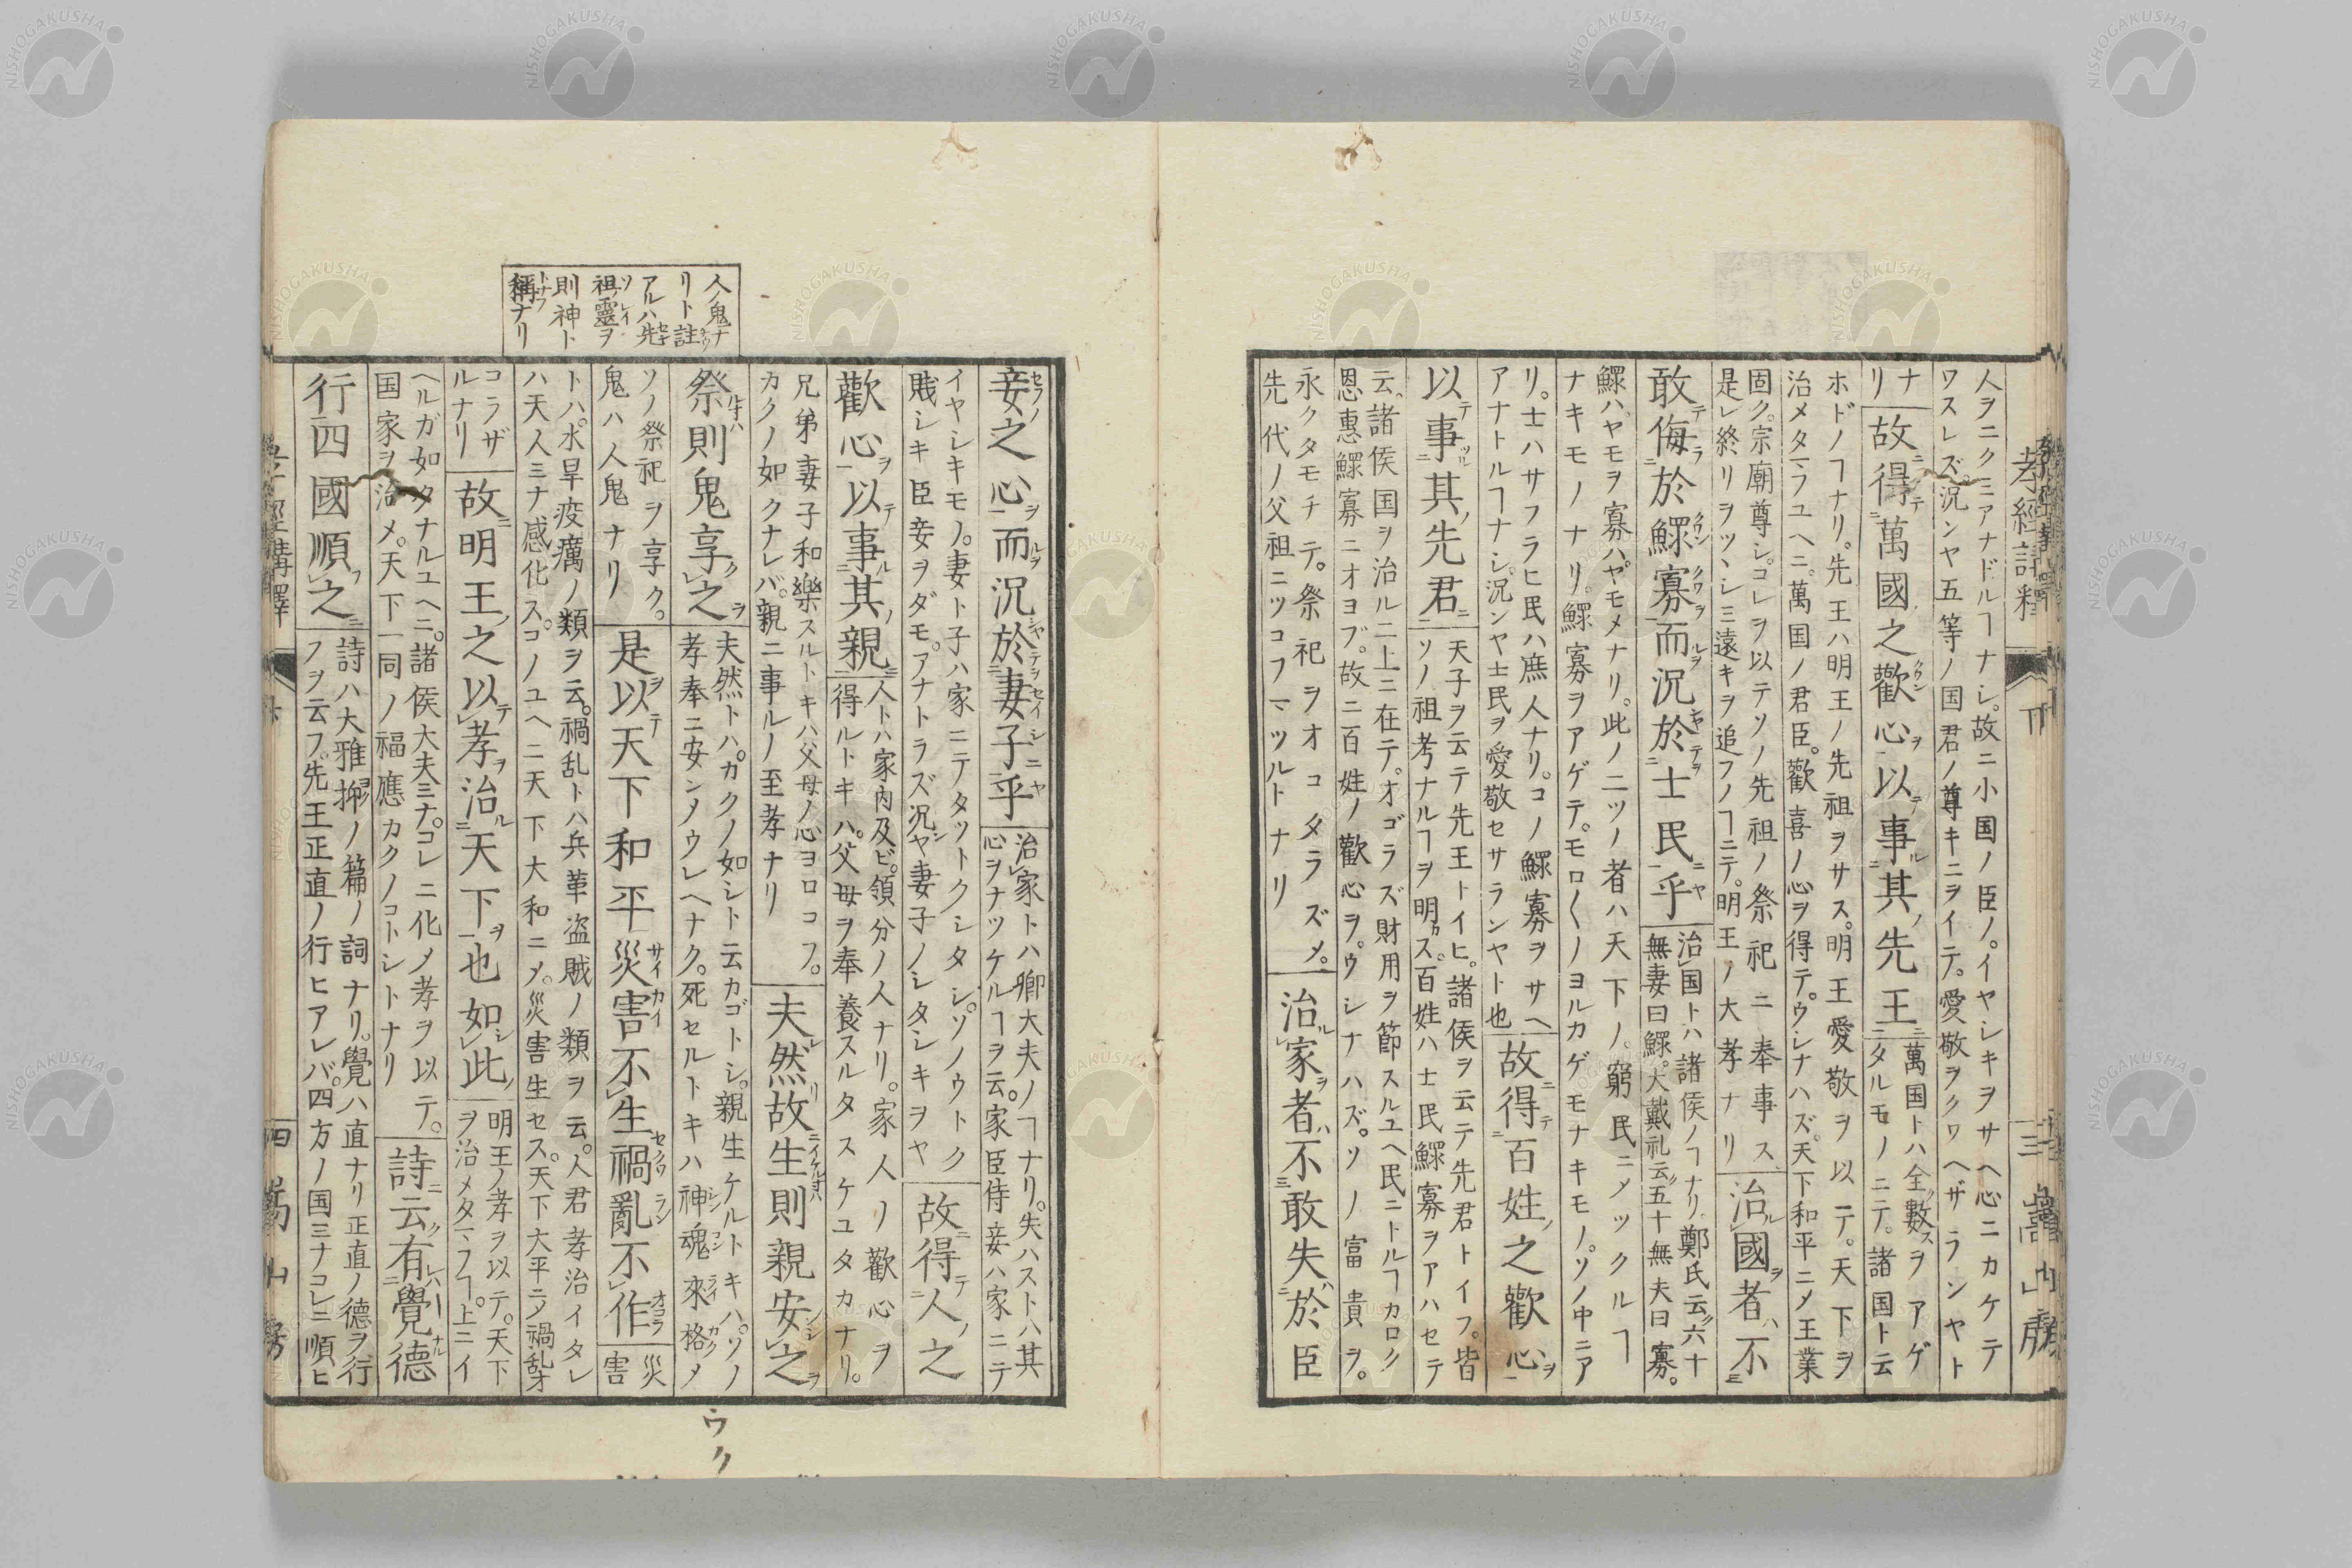 人ヲニクミアナドルヿナシ。故ニ小国ノ臣ノ。イヤシキヲサヘ心ニカケテ
ワスレズ。況ンヤ五等ノ国君ノ尊キニヲイテ。愛敬ヲクワヘザランヤト
ナリ
故得萬國之歡心以事其先王
萬国トハ全數ヲアゲ
タルモノニテ。諸国ト云
ホドノヿナリ。先王ハ明王ノ先祖ヲサス。明王愛敬ヲ以テ。天下ヲ
治メタマフユヘニ。萬国ノ君臣。歡喜ノ心ヲ得テ。ウシナハズ。天下和平ニメ王業
固ク。宗廟尊シ。コレヲ以テソノ先祖ノ祭祀ニ奉事ス
是レ終リヲツヽシミ遠キヲ追フノヿニテ。明王ノ大孝ナリ
治國者不
敢侮於鰥寡而況於士民乎
治国トハ諸侯ノヿナリ。鄭氏云六十
無妻曰鰥。大戴礼云五十無夫曰寡。
鰥ハヤモヲ寡ハヤモメナリ。此ノ二ツノ者ハ天下ノ。窮民ニメツクルヿ
ナキモノナリ。鰥寡ヲアゲテ。モロ〱ノヨルカゲモナキモノ。ソノ中ニア
リ。士ハサフラヒ民ハ庶人ナリ。コノ鰥寡ヲサヘ
アナトルヿナシ。況ンヤ士民ヲ愛敬セサランヤト也
故得百姓之歡心
以事其先君
天子ヲ云テ先王トイヒ。諸侯ヲ云テ先君トイフ。皆
ソノ祖考ナルヿヲ明カス。百姓ハ士民鰥寡ヲアハセテ
云。諸侯国ヲ治ル二上ニ在テ。オゴラズ財用ヲ節スルユヘ民ニトルヿカロク
恩惠鰥寡ニオヨブ。故ニ百姓ノ歡心ヲ。ウシナハズ。ソノ富貴ヲ。
永クタモチテ。祭祀ヲオコタラズメ。
先代ノ父祖ニツコフマツルトナリ
治家者不敢失於臣
孝經講釋
三
嵩山房
妾之心而況於妻子乎
治家トハ卿大夫ノヿナリ。失ハストハ其
心ヲナツケルヿヲ云。家臣侍妾ハ家ニテ
イヤシキモノ。妻ト子ハ家ニテタツトクシタシ。ソノウトク
賎シキ臣妾ヲダモ。アナトラズ況ヤ妻子ノシタシキヲヤ
故得人之
歡心以事其親
人トハ家内及ビ。領分ノ人ナリ。家人ノ歡心ヲ
得ルトキハ。父母ヲ奉養スルタスケユタカナリ。
兄弟妻子和樂スルトキハ父母ノ心ヨロコフ。
カクノ如クナレバ。親ニ事ルノ至孝ナリ
夫然故生則親安之
祭則鬼享之
夫然トハ。カクノ如シト云カゴトシ。親生ケルトキハ。ソノ
孝奉ニ安ンノウレヘナク。死セルトキハ神魂來格メ
ソノ祭祀ヲ享ク。
鬼ハ人鬼ナリ
是以天下和平災害不生禍亂不作
災
害
トハ。水旱疫癘ノ類ヲ云。禍乱トハ兵革盗賊ノ類ヲ云。人君孝治イタレ
ハ天人ミナ感化ス。コノユヘニ天下大和ニメ。災害生セス。天下大平ニメ禍乱オ
コラザ
ルナリ
故明王之以孝治天下也如此
明王ノ孝ヲ以テ。天下
ヲ治メタマフヿ。上ニイ
ヘルガ如クナルユヘニ。諸侯大夫ミナ。コレニ化メ孝ヲ以テ。
国家ヲ治メ。天下一同ノ福應カクノコトシトナリ
詩云有覺德
行四國順之
詩ハ大雅抑ノ篇ノ詞ナリ。覺ハ直ナリ正直ノ德ヲ行
フヲ云フ。先王正直ノ行ヒアレバ。四方ノ国ミナコレニ順ヒ
人ノ鬼ナ
リト註
アルハ先
祖ノ靈ヲ
則神ト
稱ナリ
ウク